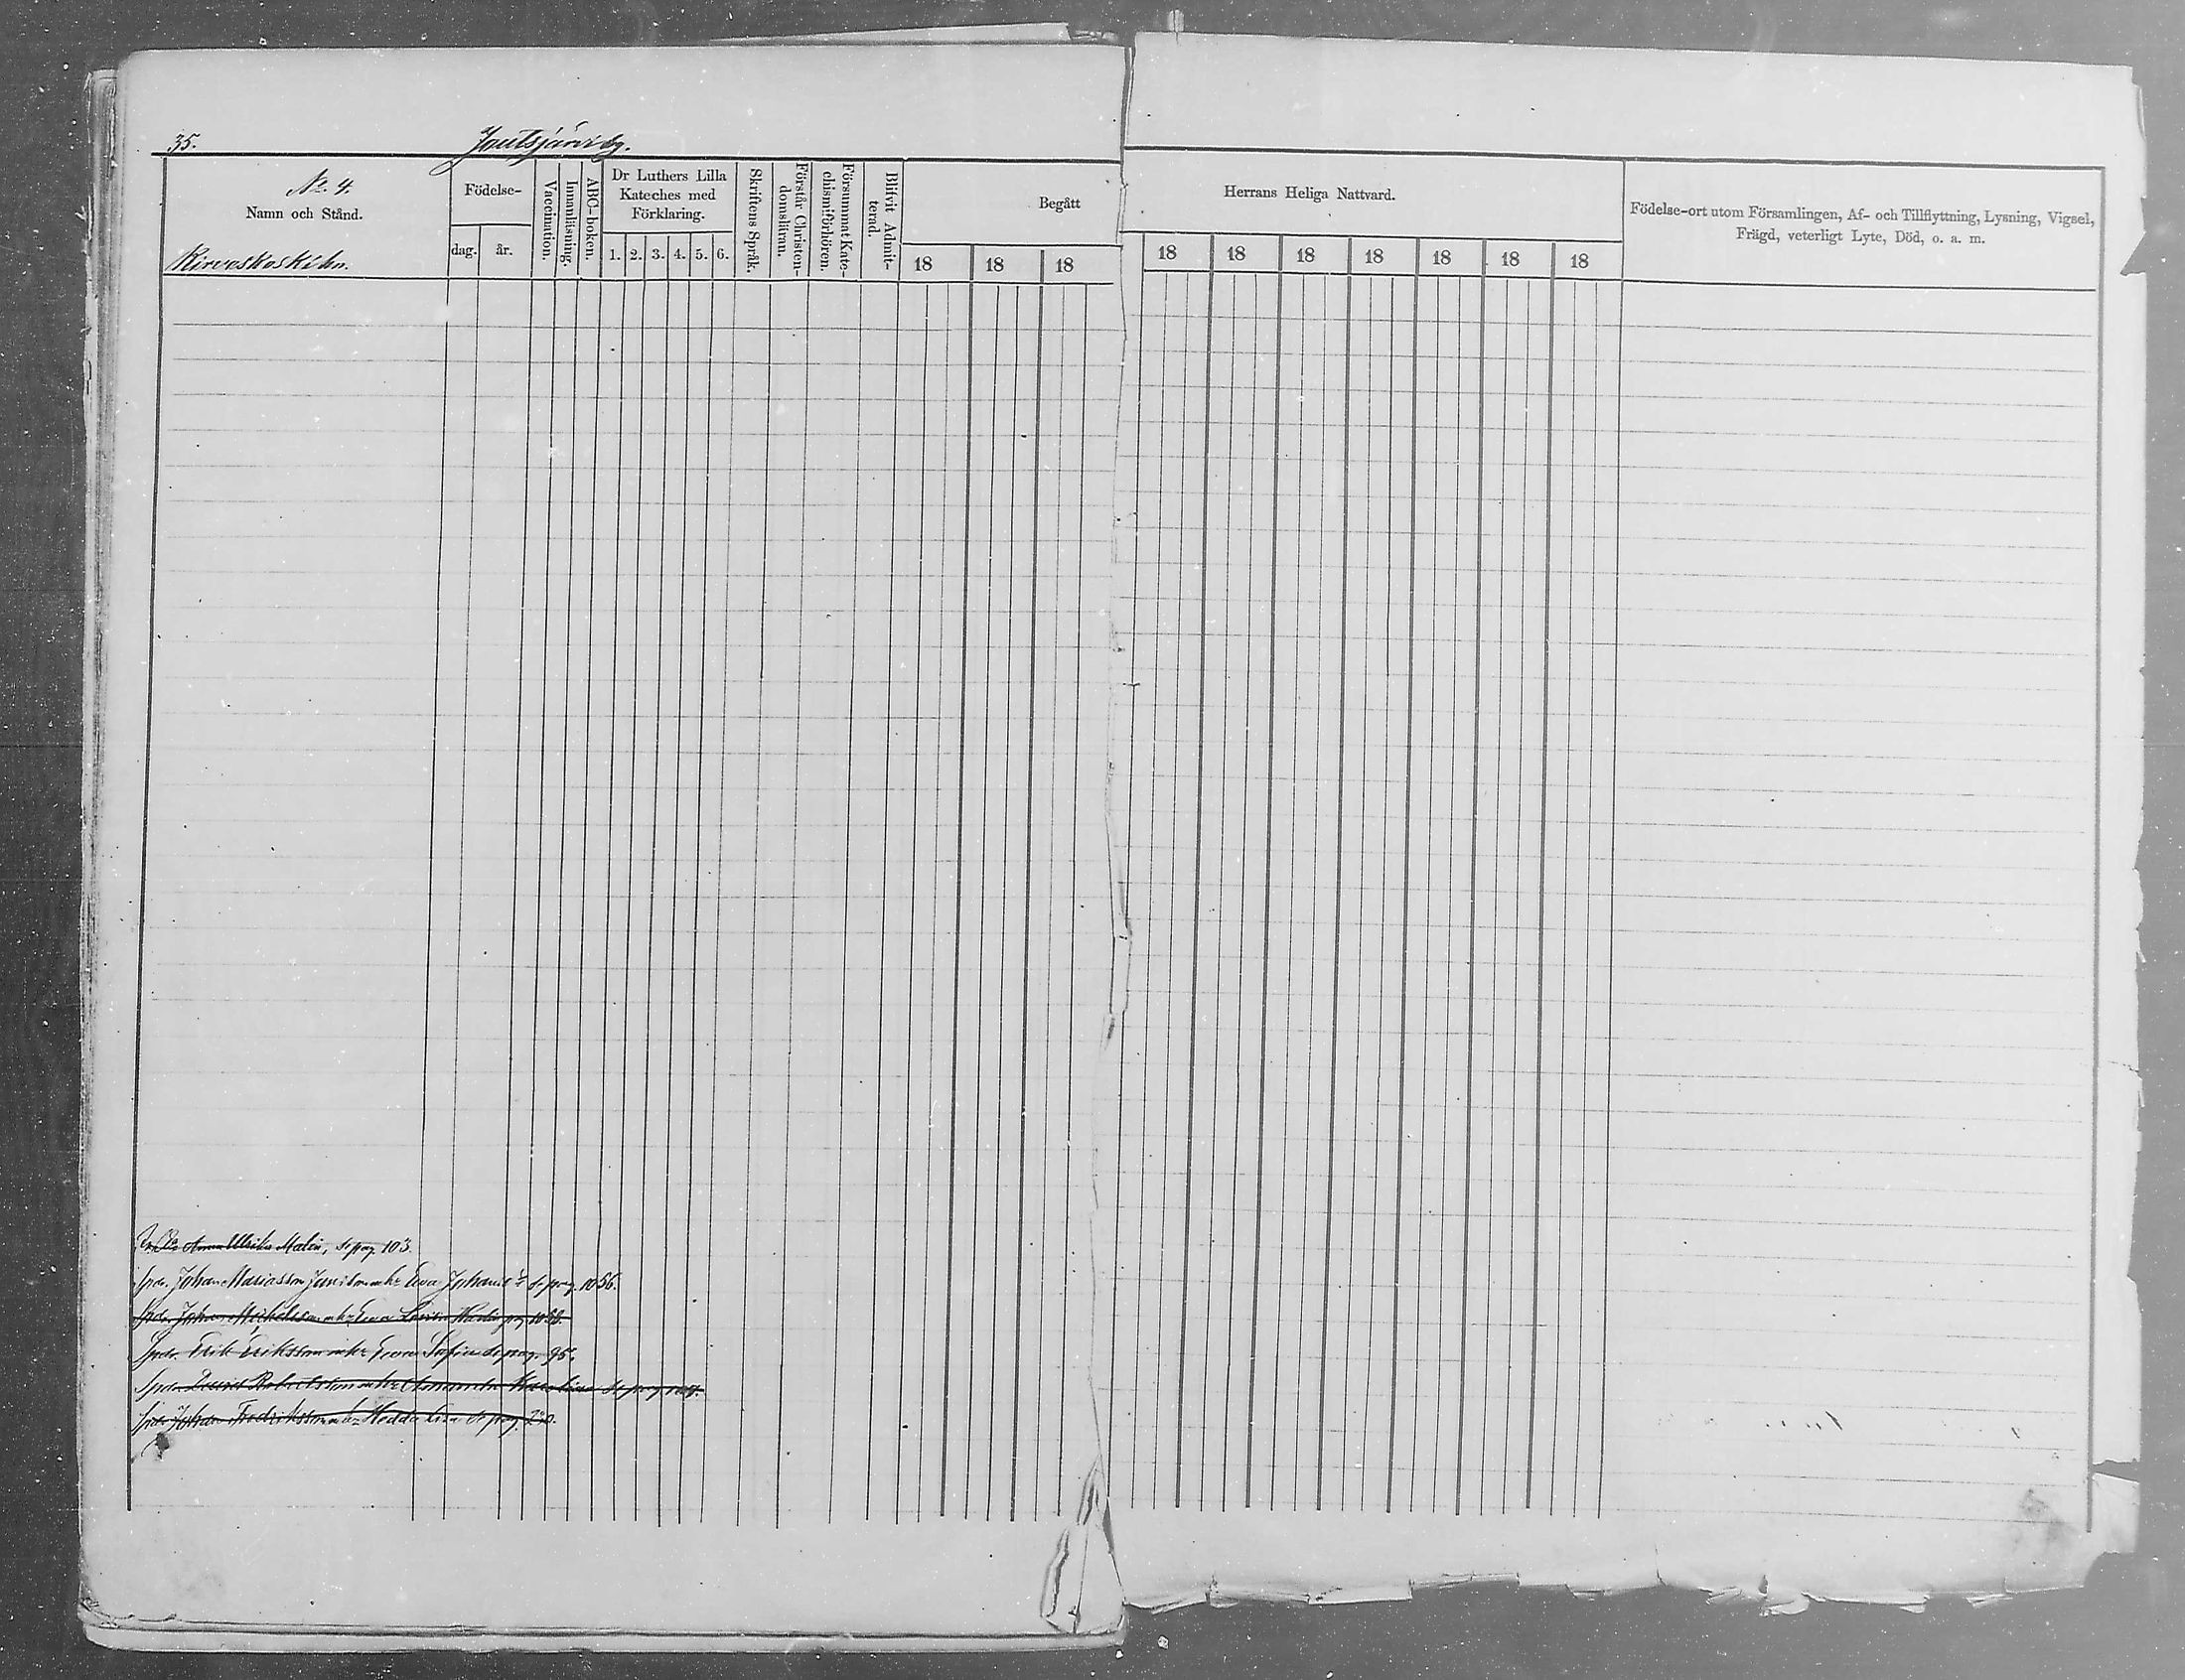 35. Jautsjärvi by.
No. 4.
Namn och Stånd.
Kirveskoski hn.
Födelse-
dag. år.
Vaccination.
Innanläsning.
ABC-boken.
Dr Luthers Lilla
Kateches med
Förklaring.
1. 2. 3. 4. 5. 6.
Skriftens Språk.
Förstår Christen-
domslitran.
Försummat Kate-
chismiförhören.
Blifvit Admit-
terad.
Begått Herrans Heliga Nattvard.
18 18 18 18 18 18 18 18 18 18
Födelse-ort utom Församlingen, Af- och Tillflyttning, Lysning, Vigsel,
Frägd, veterligt Lyte, Död, o. a. m.
Anna Ulrika Malin, se pag. 103.
Johan Mariasson Eva se pag. 1056.
Johan Mickelsson Eva Lovisa pag.
Erik Eriksson Eva Sofia se pag. 95.
David Robertsson Karolina se pag.
Johan Fredriksson Hedda Lisa se pag.